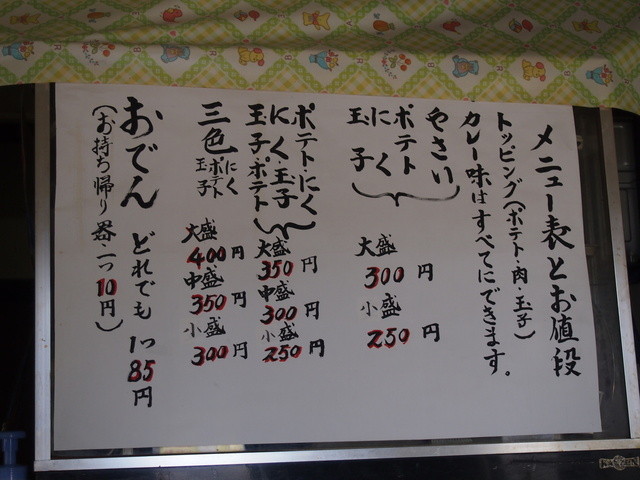 メニュー表とお値段
トッピング(ポテト・肉・玉子)
カレー味はすべてにできます。
やさい
ポテト
にく
玉子
大盛
300円
小盛
250円
ポテト・にく
にく玉子
玉子・ポテト
大盛
350円
中盛
300円
小盛
250円
三色
にく
ポテト
玉子
大盛
400円
中盛
350円
小盛
300円
おでん どれでも 1つ85円
(お持ち帰り 一つ10円)